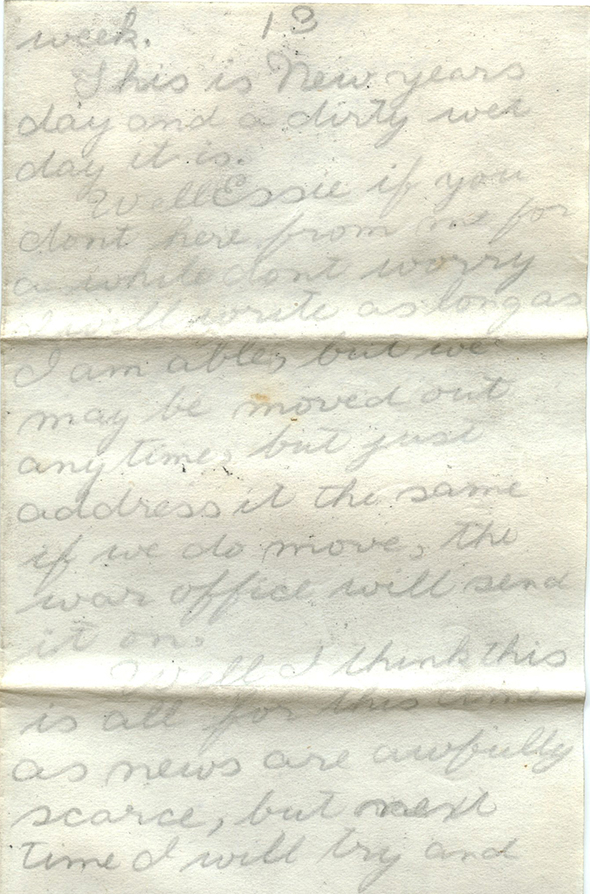 13
week.
This is New years
day and a dirty wet
day it is.
Well Essie if you
dont here from me for
a while dont worry
I will write as long as
I am able, but we
may be moved out
any time, but just
address it the same
if we do move, the
war office will send
it on.
Well I think this
is all for this time
as news are awfully
scarce, but next
time I will try and